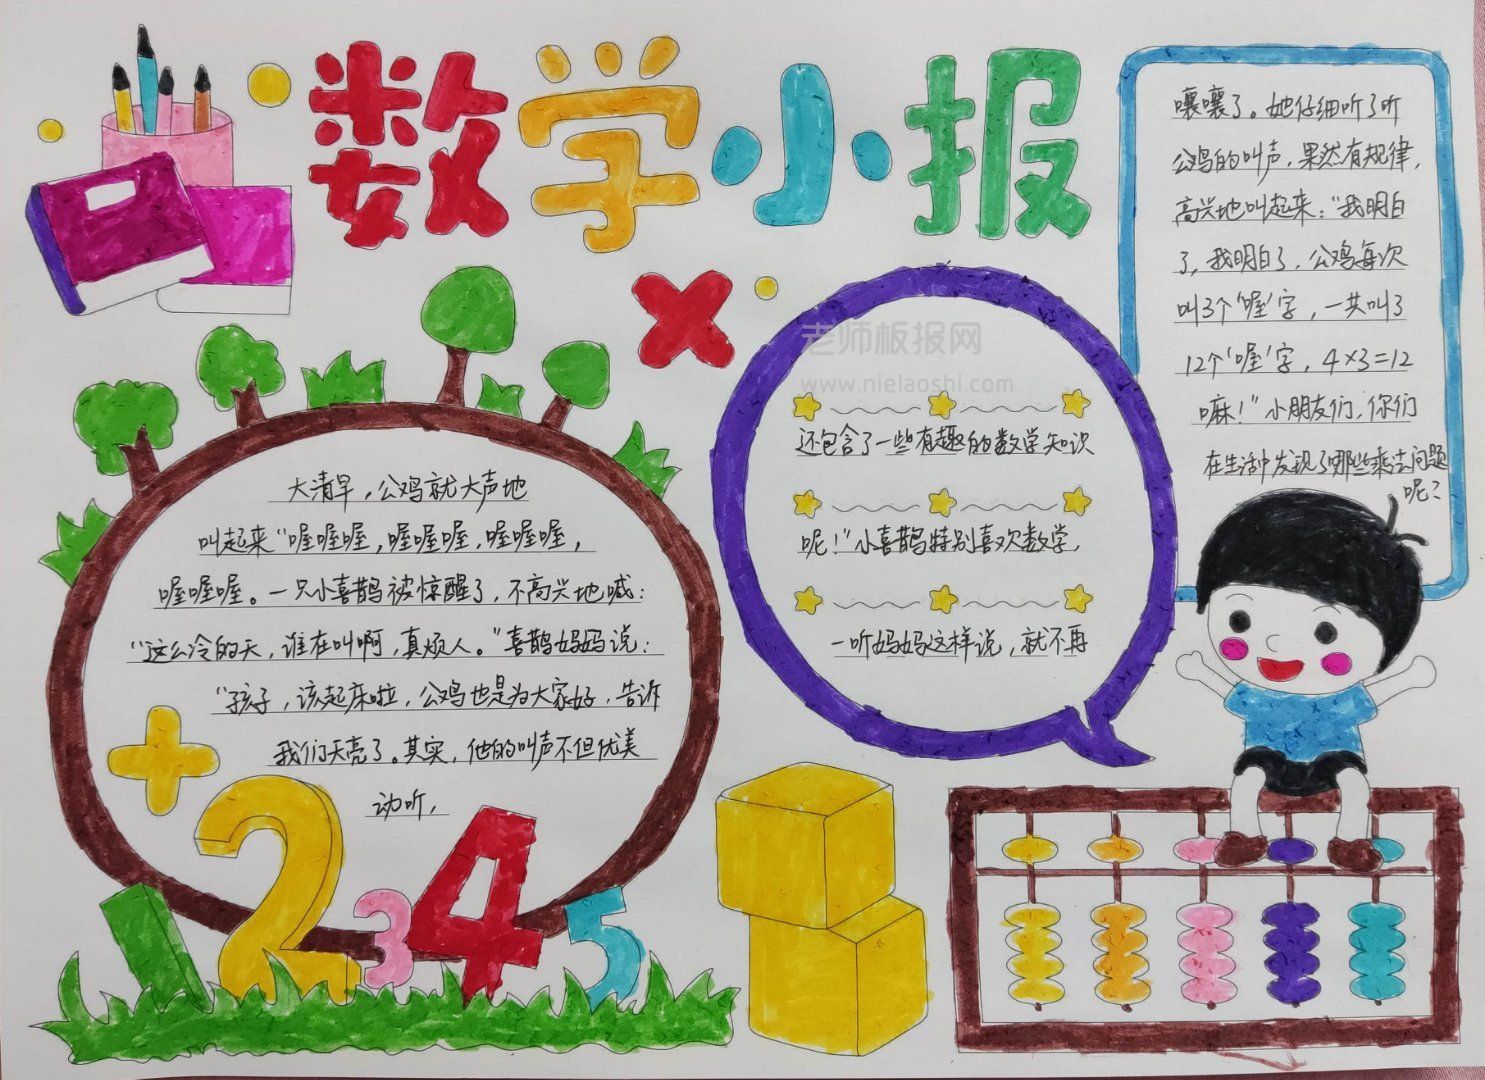 数学小报
大清早，公鸡就大声地
叫起来“喔喔喔，喔喔喔，喔喔喔，
喔喔喔。一只小喜鹊被惊醒了，不高兴地喊：
“这么冷的天，谁在叫啊，真烦人。”喜鹊妈妈说：
“孩子，该起床啦，公鸡也是为大家好，告诉
我们天亮了。其实，他的叫声不但优美
动听，
1 2 3 4 5
老师板报网
www.nielaoshi.com
还包含了一些有趣的数学知识
呢！”小喜鹊特别喜欢数学，
一听妈妈这样说，就不再
嚷嚷了。她仔细听了听
公鸡的叫声，果然有规律，
高兴地叫起来：“我明白
了，我明白了，公鸡每次
叫3个‘喔’字，一共叫了
12个‘喔’字，4×3=12
嘛！”小朋友们，你们
在生活中发现了哪些乘法问题
呢？